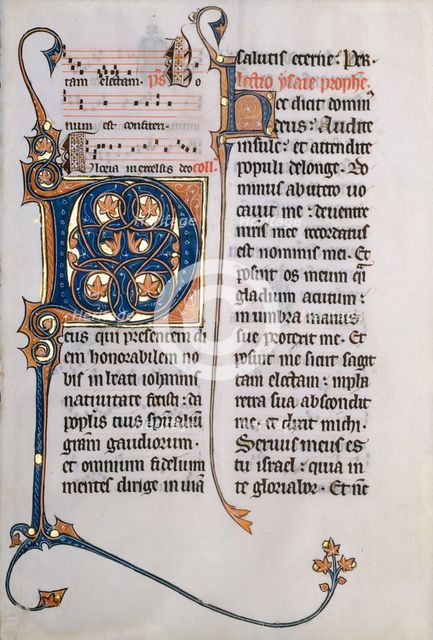 tam electam. ps Bo
num est confiten.
Gloria in excelsis deo coll.
Deus qui presentem di
em honorabilem no
bis in beati iohannis
natiuitate fecisti: da
populis tuis spiritualium
gratiam gaudiorum.
et omnium fidelium
mentes dirige in uiam
salutis eterne. Per.
lectio ysaie prophe.
Hec dicit domin
deus. Audite
insule: et attendite
populi delonge. Do
minus ab utero uo
cauit me: de uentre
matris mee recordatus
est nominis mei. Et
posuit os meum qi
gladium acutum:
in umbra manus
sue protexit me. Et
posuit me sicut sagit
tam electam: in pha
retra sua abscondit
me. et dixit michi.
Seruus meus es
tu israel: quia in
te gloriabor. Et nc